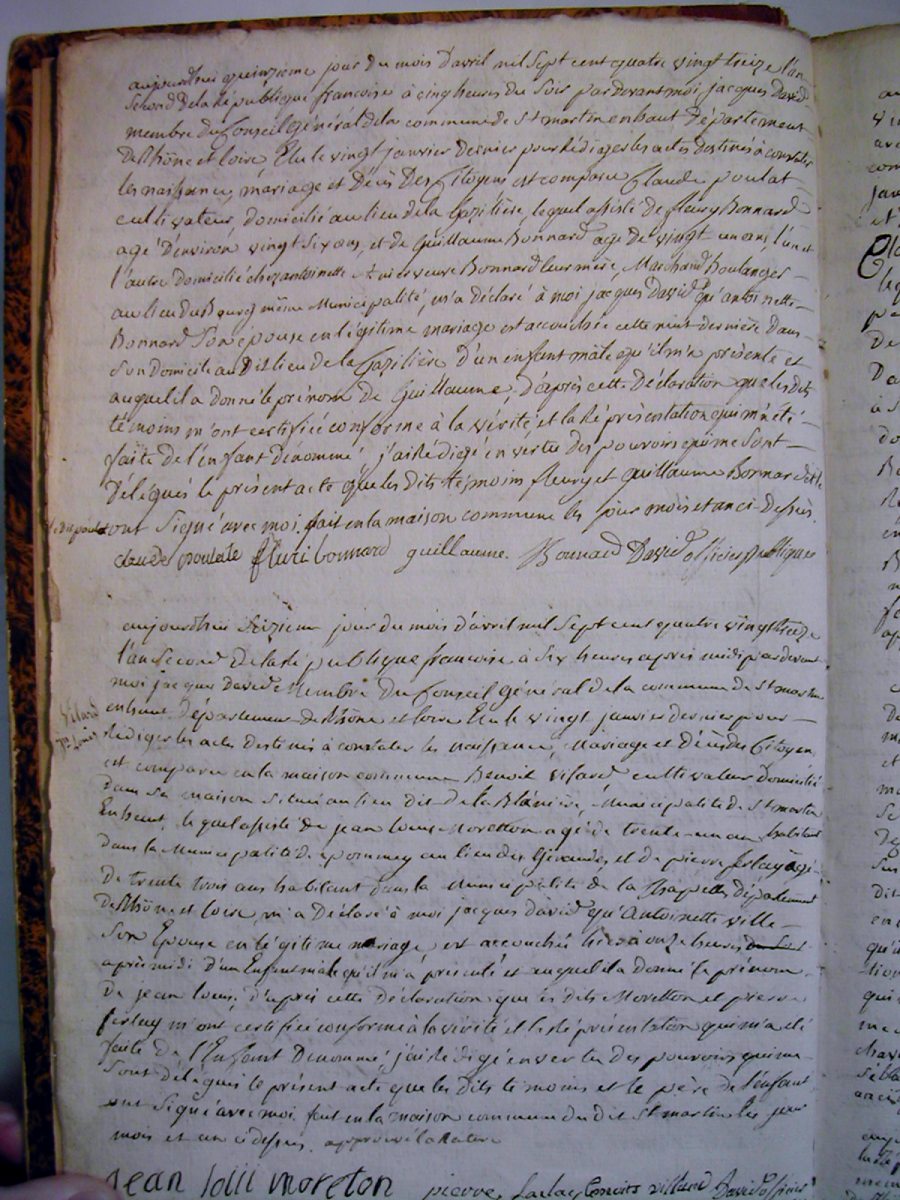 aujourdhui quinzieme jour du mois d'avril mil sept cent quatre vingt treize l'an
second de la République françoise à cinq heures du soir par devant moi jacques David
membre du Conseil Général de la commune de st martin en haut Département
De Rhône et loire Elu le vingt janvier dernier pour Rédiger les actes destinés à constater
les naissance, mariage et Décès Des Citoyens est comparu Claude poulat
cultivateur, domicilié au lieu de la Chazilière, lequel assisté de fleury Bonnard
agé D'environ vingt six ans, et de Guillaume Bonnard agé de vingt un ans, l'un et
l'autre domicilié chez antoinette veuve Bonnard leur mère, Marchand Boulanger
au lieu du Bourg même Municipalité, m'a déclaré à moi jacques David qu'antoinette
Bonnard Son épouse en légitime mariage est accouchée cette nuit dernière Dans
son domicile au Dit lieu de la Chazilière D'un enfant mâle qu'il m'a présenté et
auquel il a donné le prénom de Guillaume, d'après cette Déclaration que les dits
témoins m'ont certifiée conforme à la vérité et la Représentation qui m'a été
faite de l'enfant dénommé j'ai Rédigé en vertu des pouvoirs qui me sont
Délégués le présent acte que les dits témoins fleury et Guillaume Bonnard et le
dit poulat ont signé avec moi, fait en la maison commune les jour mois et an ci Dessus.
claude poulate fleuri bonnard guillaume Bonnard David officier publique
aujourdhui seizieme jour du mois d'avril mil sept cent quatre vingt treize
l'an second de la République francoise à six heures après midi par devant
moi jacques David Membre Du Conseil général de la commune de st martin
en haut, département de Rhône et loire Elu le vingt janvier dernier pour
Vilard
jn Louis
Rédiger les actes destinés à constater les naissance, Mariage et Décès des Citoyens
est comparu en la maison commune Benoit vilard cultivateur domicilié
dans sa maison située au lieu dit de la Municipalité de st martin
en haut, lequel assisté de jean louis Moretton agé de trente un an habitant
dans la Municipalité de pommey au lieu des Giraudes, et de pierre ferlay agé
De trente trois ans habitant dans la Municipalité de la Chapelle département
de Rhône et loire, m'a Déclaré à moi jacques david qu'Antoinette ville
Son Epouse en légitime mariage, est accouchée hier à onze heures
après midi d'un Enfant mâle qu'il m'a présenté et auquel il a donné le prénom
De jean louis, d'après cette déclaration que les dits Moretton et pierre
ferlay m'ont certifiée conforme à la vérité et la Représentation qui m'a été
faite de l'Enfant Dénommé j'ai Rédigé en vertu des pouvoirs qui me
sont délégués le présent acte que les dits témoins et le père de l'enfant
ont signé avec moi fait en la maison commune du dit st martin les jour
mois et an ci dessus, approuvé la Rature
Jean loui moreton pierre ferlay benoit villard David officier